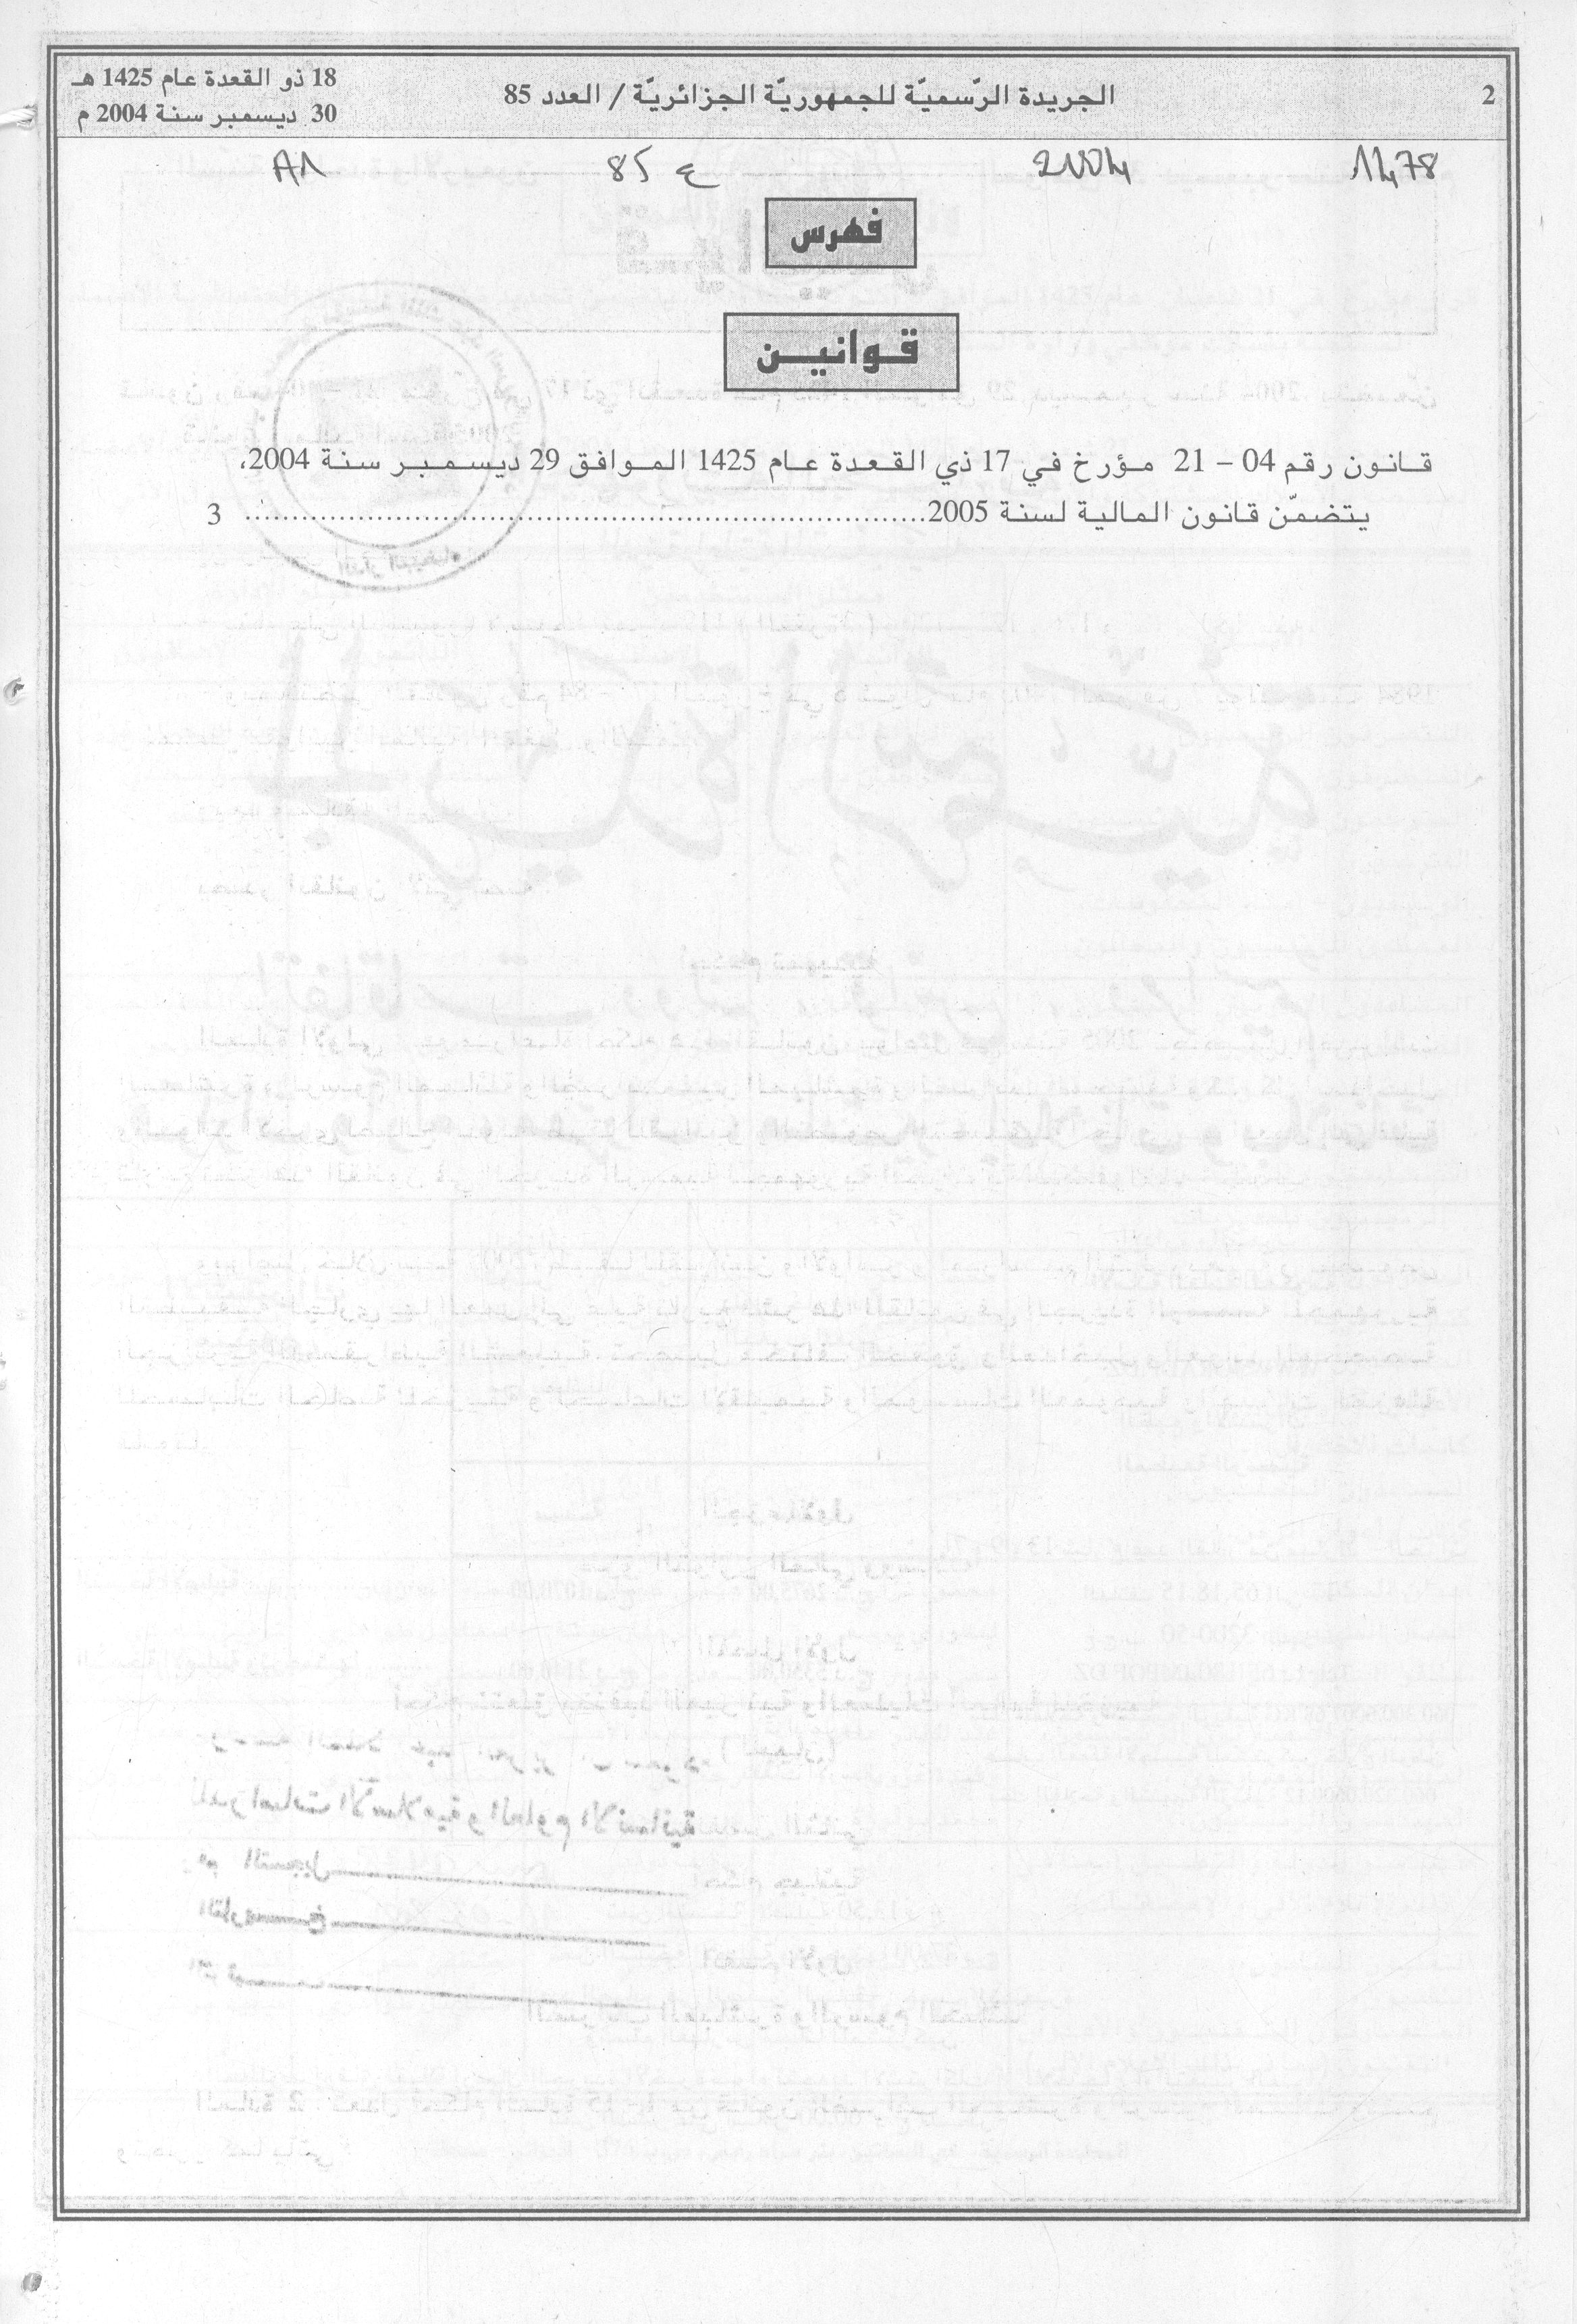 2
الجريدة الرّسميّة للجمهوريّة الجزائريّة / العدد 85
18 ذو القعدة عام 1425 هـ
30 ديسمبر سنة 2004 م
1478 2004 ع 85 A1
فهرس
قوانين
قانون رقم 04 – 21 مؤرخ في 17 ذي القعدة عام 1425 الموافق 29 ديسمبر سنة 2004،
يتضمّن قانون المالية لسنة 2005........................................................................ 3